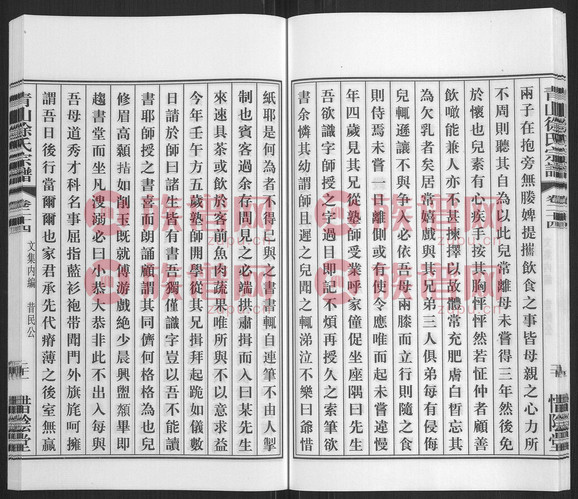 青山徐氏宗譜
卷二十四
惜陰堂
兩子在抱旁無媵婢提攜飲食之事皆母親之心力所
不周則聽其自為以此兒常離母未嘗得三年然後免
於懷也兒素有心疾手按其胸怦怦然若怔仲者顧善
飲噉能兼人亦不甚揀擇以故體常充肥膚白皙忘其
為欠乳者矣居常嬉戲與其兄弟三人俱弟每有侵侮
兒輒遜讓不與爭入必依吾母兩膝而立行則隨之食
則侍焉未嘗一日離側或有使令應唯而起未嘗違慢
年四歲見其兄從塾師受業呼家僮促坐座隅曰先生
吾欲識字師授之字過目即記不煩再授久之索筆欲
書余憐其幼謂師曰姑且遲之兒聞之輒涕泣不樂曰爺惜
紙耶是何為者不得已與之書書輒自連筆不由人掣
制也賓客過余存問見之必端拱肅揖而入曰某先生
來速具茶或飲於客前魚肉蔬果唯所與不以意求益
今年壬午方五歲塾師開學從其兄揖拜起跪如儀數
日請於師曰諸生皆有書吾獨僅識字豈以吾不能讀
書耶師授之書喜而朗誦顧謂其同儕何格格為也兒
修眉高顙拮如削玉既就傅游戲絶少晨興盥頮畢即
趨書堂而坐凡溲溺必曰小恭大恭非此不出入每與
吾母道秀才科名事屈指藍衫袍帶閭門外旗旄呵擁
謂吾日後行當爾爾也家君承先代瘠薄之後室無贏
青山徐氏宗譜
卷二十四
文集内編
昔民公
惜陰堂